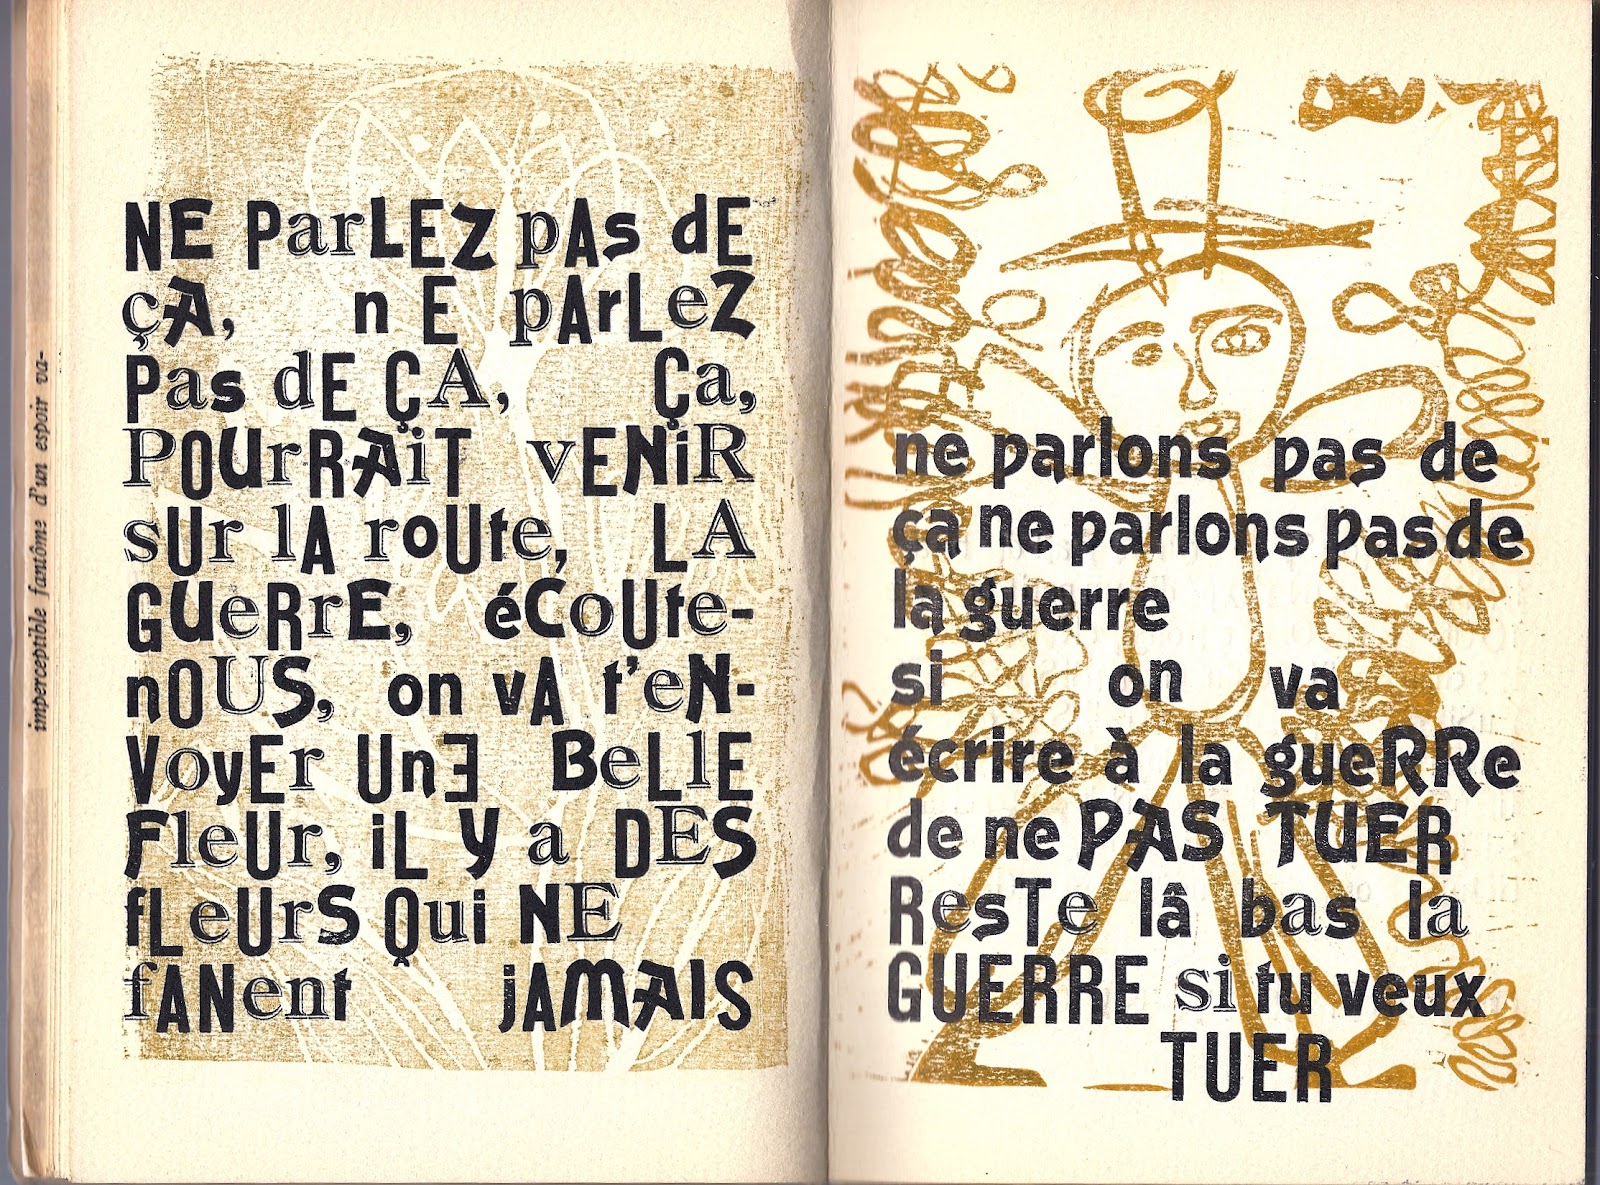 imperceptible fantôme d'un espoir va-
NE ParLEZ pAs dE
çA, n E pArLeZ
Pas dE ÇA, Ça,
POUrRAiT vENiR
sUr lA roUte, LA
GUeRrE, éCoUte-
nOUS, on vA t'eN-
VoyEr UnE BeLlE
FleUr, iL y a DES
fLeUrS Qui NE
fANent jAMAIS
ne parlons pas de
ça ne parlons pas de
la guerre
si on va
écrire à la gueRRe
de ne PAS TUER
ResTe lâ bas la
GUERRE si tu veux
TUER